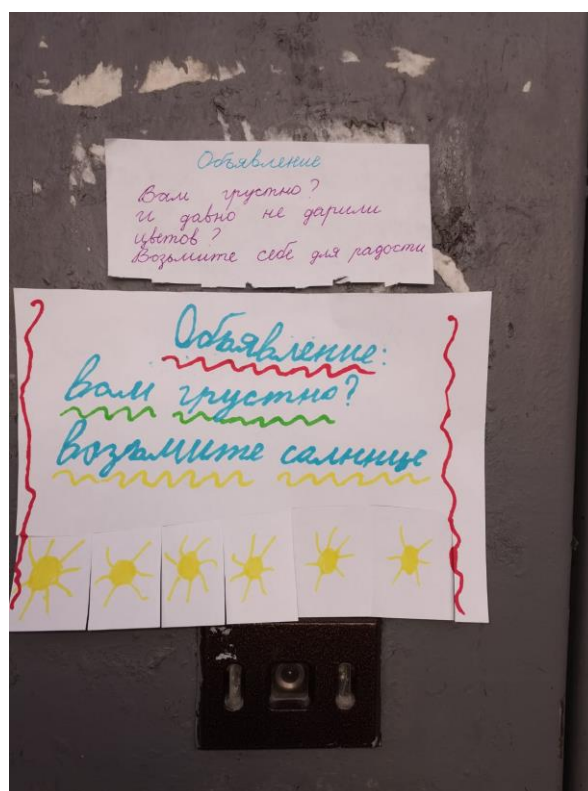 Объявление
Вам грустно?
и давно не дарили
цветов?
Возьмите себе для радости
Объявление:
Вам грустно?
возьмите салнице